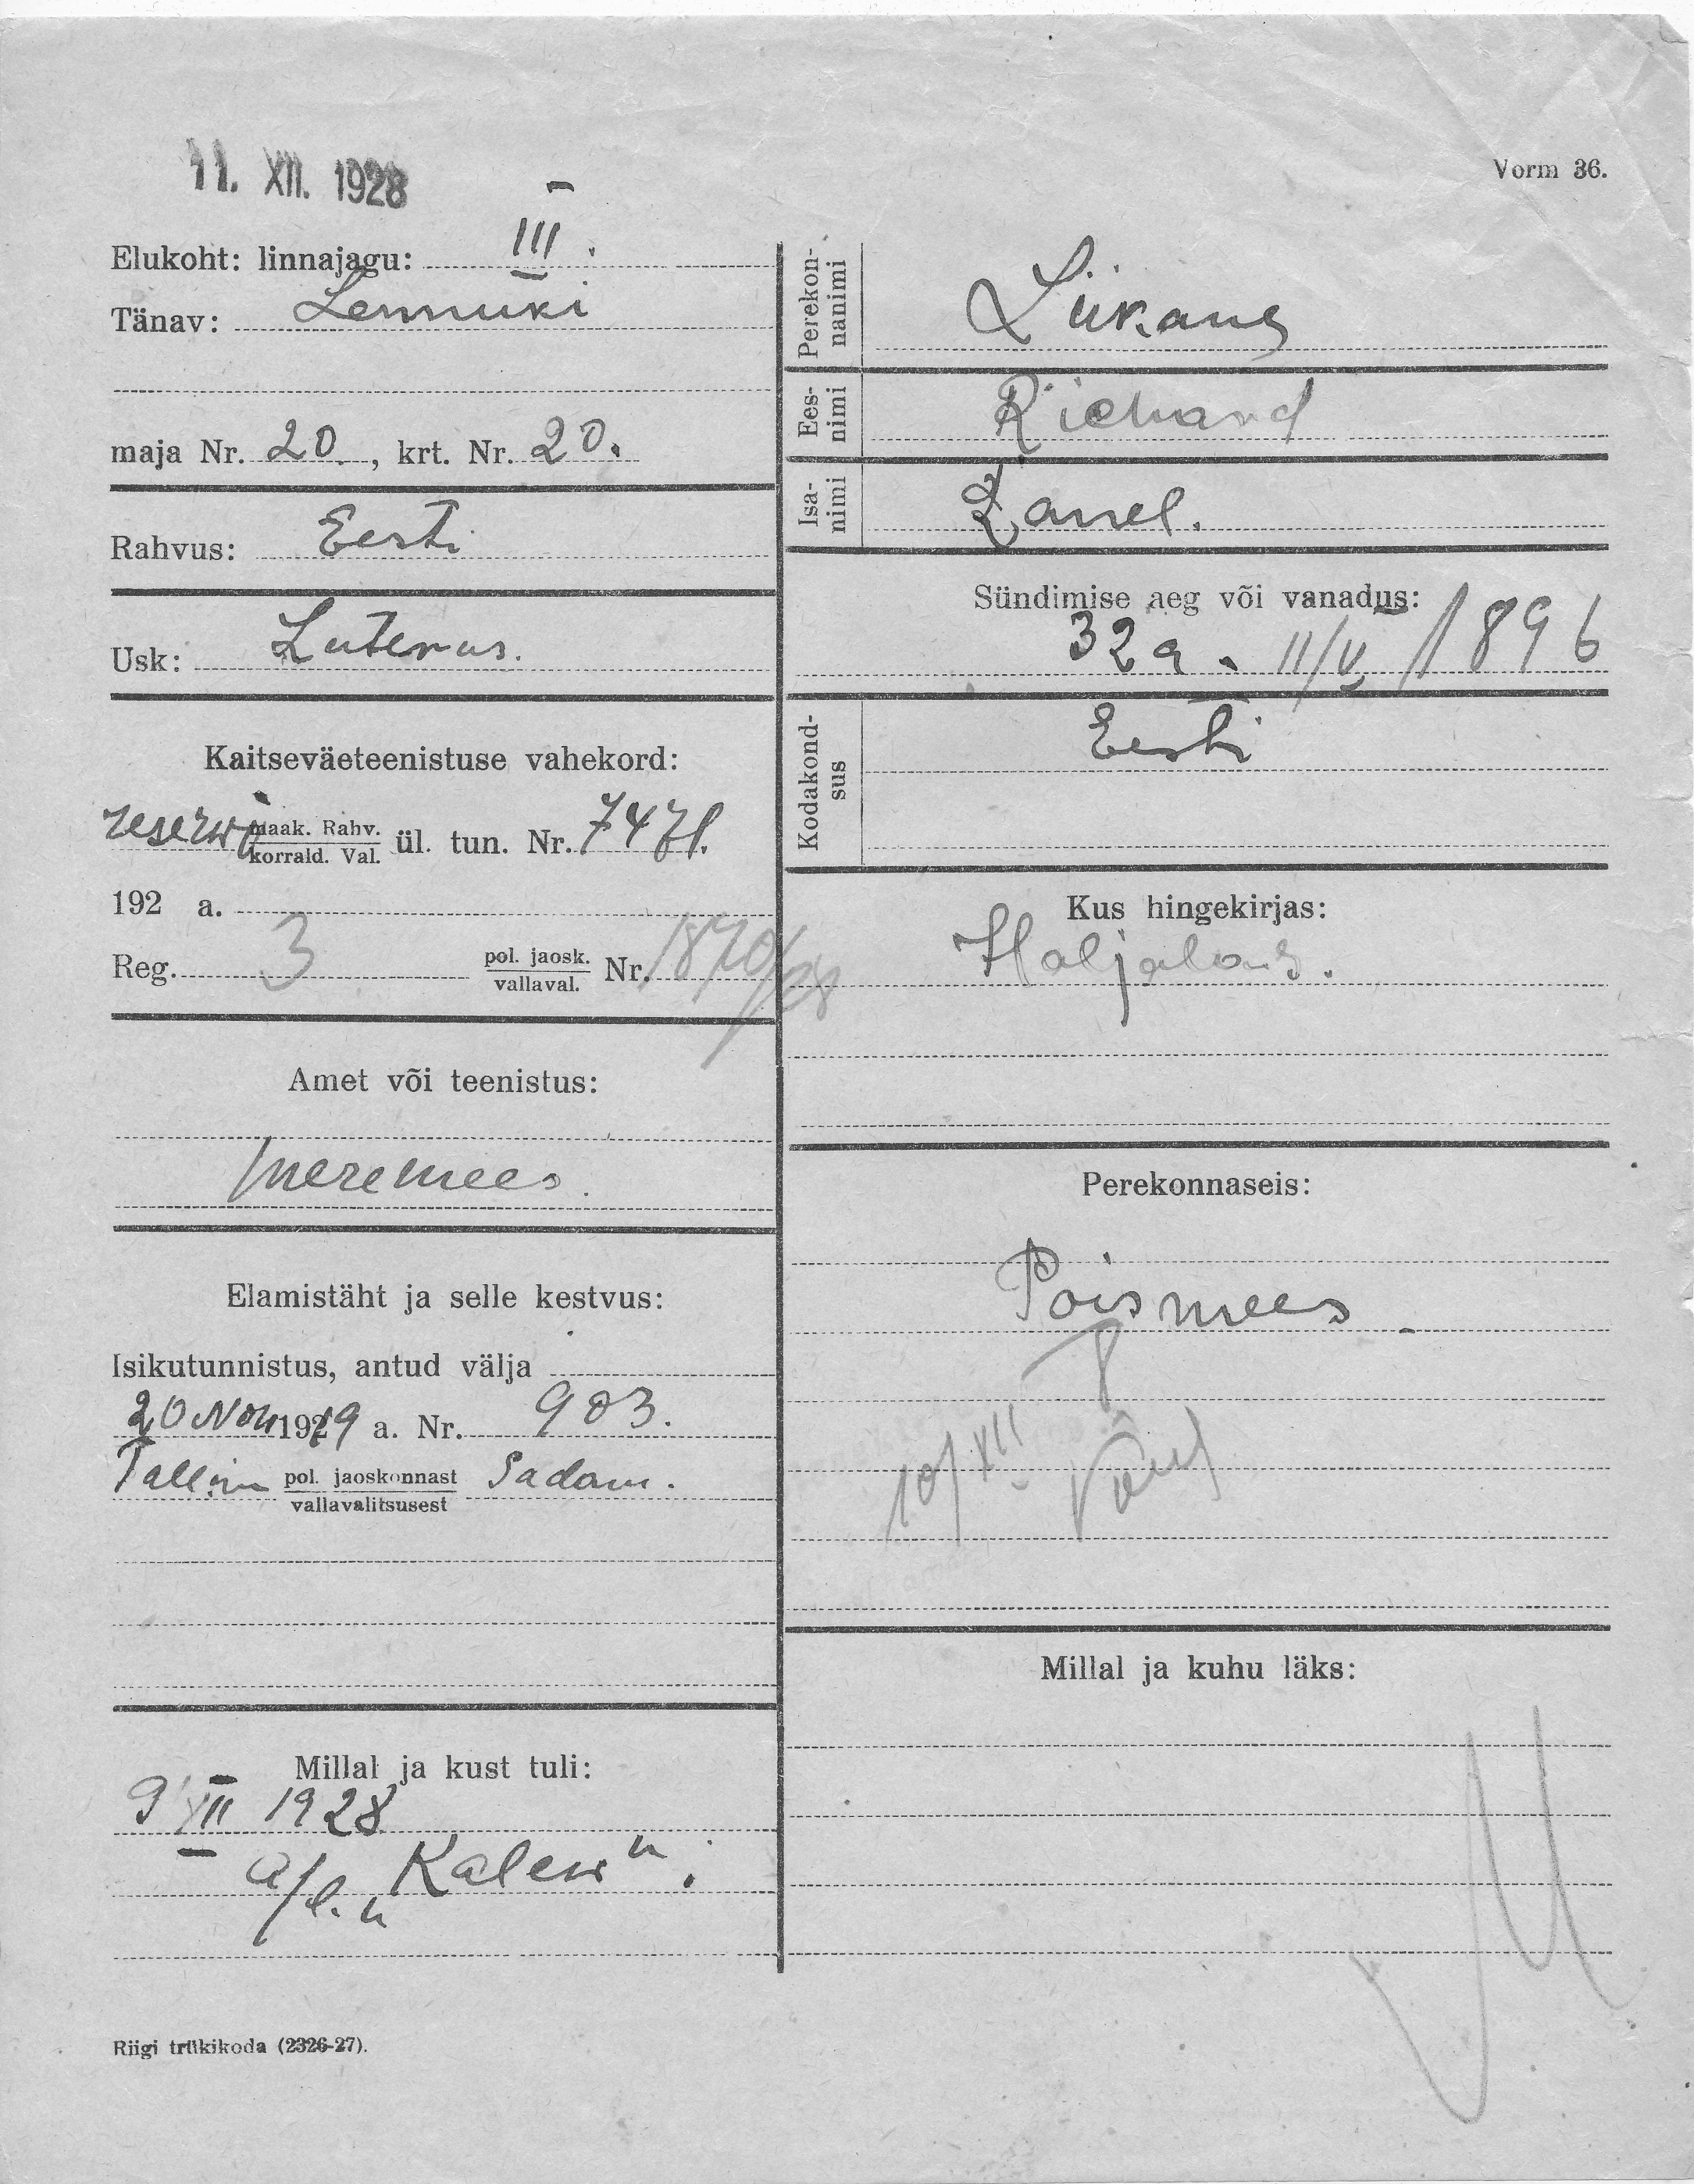 11. XII. 1928
Vorm 36.
Elukoht: linnajagu: III.
Tänav: Lennuki
maja Nr. 20, krt. Nr. 20.
Rahvus: Eesti
Usk: Luterus.
Kaitseväeteenistuse vahekord:
reservi maak. Rahv. korrald. Val. ül. tun. Nr. 7471.
192 a.
Reg. 3 pol. jaosk. vallaval. Nr. 1870/28
Amet või teenistus:
meremees.
Elamistäht ja selle kestvus:
Isikutunnistus, antud välja
20 Nov 1919 a. Nr. 903.
Tallinn pol. jaoskonnast vallavalitsusest Sadam.
Millal ja kust tuli:
9 XII 1928
a/l. „Kalew“.
Riigi trükikoda (2326-27).
Perekonnanimi
Eesnimi Richard
Isanimi
Sündimise aeg või vanadus:
32 a. II/V 1896
Kodakondsus Eesti
Kus hingekirjas:
Haljalas.
Perekonnaseis:
Poismees
10/XII
Millal ja kuhu läks: